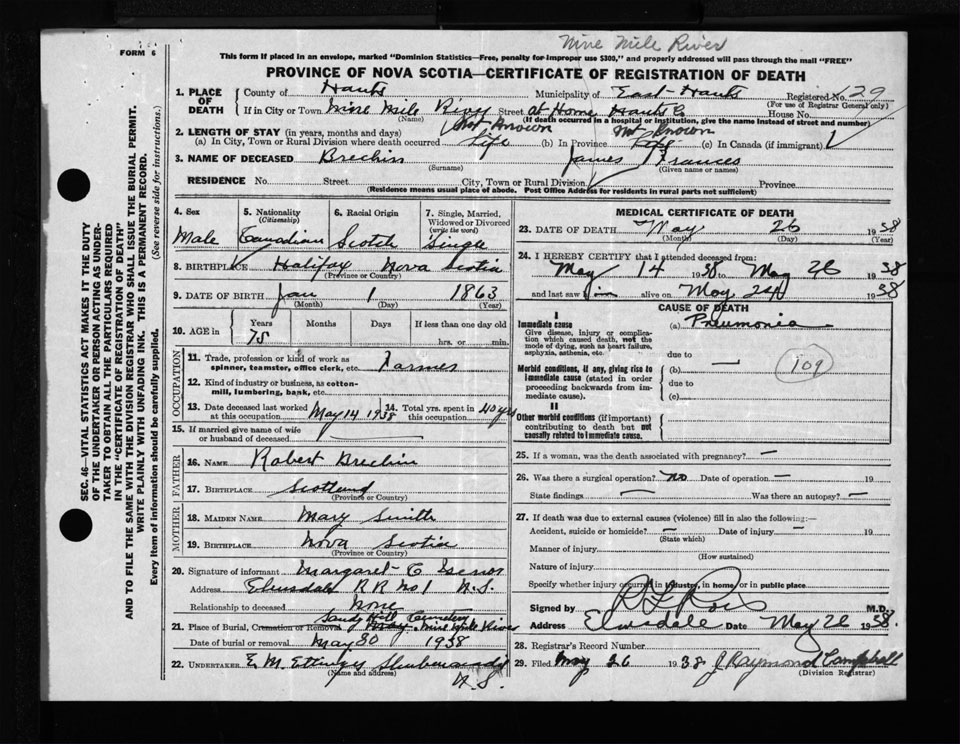 Nine Mile River
FORM 6
This form if placed in an envelope, marked "Dominion Statistics—Free, penalty for improper use $300," and properly addressed will pass through the mail "FREE"
PROVINCE OF NOVA SCOTIA—CERTIFICATE OF REGISTRATION OF DEATH
1. PLACE OF DEATH County of Hants Municipality of East-Hants Registered No. 29
(For use of Registrar General only)
If in City or Town Nine Mile River Street at Home Hants Co House No.
(Name) (If death occurred in a hospital or institution, give the name instead of street and number)
Not Known Not Known
2. LENGTH OF STAY (in years, months and days)
(a) In City, Town or Rural Division where death occurred Life (b) In Province Life (c) In Canada (if immigrant)
3. NAME OF DECEASED Brechin James Frances
(Surname) (Given name or names)
RESIDENCE No. Street City, Town or Rural Division Province
(Residence means usual place of abode. Post Office Address for residents in rural parts not sufficient)
4. Sex 5. Nationality (Citizenship) 6. Racial Origin 7. Single, Married, Widowed or Divorced (write the word)
Male Canadian Scotch Single
8. BIRTHPLACE Halifax Nova Scotia
(Province or Country)
9. DATE OF BIRTH Jan 1 1863
(Month) (Day) (Year)
10. AGE in Years Months Days If less than one day old
75 hrs. or min.
OCCUPATION
11. Trade, profession or kind of work as spinner, teamster, office clerk, etc. Farmer
12. Kind of industry or business, as cotton-mill, lumbering, bank, etc.
13. Date deceased last worked at this occupation May 14 1938 14. Total yrs. spent in this occupation 40 yrs
15. If married give name of wife or husband of deceased
FATHER
16. NAME Robert Brechin
17. BIRTHPLACE Scotland
(Province or Country)
MOTHER
18. MAIDEN NAME Mary Smith
19. BIRTHPLACE Nova Scotia
(Province or Country)
20. Signature of informant Margaret C Isenor
Address Elmsdale R R No 1 N.S.
Relationship to deceased None
Sandy Hill Cemetery
21. Place of Burial, Cremation or Removal Nine Mile River
Date of burial or removal May 30 1938
22. UNDERTAKER E. M. Ettinger Shubenacadie
(Name and address) N.S.
MEDICAL CERTIFICATE OF DEATH
23. DATE OF DEATH May 26 1938
(Month) (Day) (Year)
24. I HEREBY CERTIFY that I attended deceased from:
May 14 1938 to May 26 1938
and last saw him alive on May 24 1938
CAUSE OF DEATH
I
Immediate cause (a) Pneumonia
Give disease, injury or complication which caused death, not the mode of dying, such as heart failure, asphyxia, asthenia, etc.
due to
Morbid conditions, if any, giving rise to immediate cause (stated in order proceeding backwards from immediate cause).
(b) —
due to
(c)
109
II
Other morbid conditions (if important) contributing to death but not causally related to immediate cause.
25. If a woman, was the death associated with pregnancy? —
26. Was there a surgical operation? no Date of operation — 19
State findings — Was there an autopsy? —
27. If death was due to external causes (violence) fill in also the following:—
Accident, suicide or homicide? — Date of injury — 19
(State which)
Manner of injury
(How sustained)
Nature of injury
Specify whether injury occurred in industry, in home, or in public place
Signed by M.D.
Address Elmsdale Date May 26 1938.
28. Registrar's Record Number
29. Filed May 26 1938 J Raymond Campbell
(Division Registrar)
SEC. 46—VITAL STATISTICS ACT MAKES IT THE DUTY
OF THE UNDERTAKER OR PERSON ACTING AS UNDER-
TAKER TO OBTAIN ALL THE PARTICULARS REQUIRED
IN THE "CERTIFICATE OF REGISTRATION OF DEATH"
AND TO FILE THE SAME WITH THE DIVISION REGISTRAR WHO SHALL ISSUE THE BURIAL PERMIT.
WRITE PLAINLY WITH UNFADING INK. THIS IS A PERMANENT RECORD.
Every item of information should be carefully supplied. (See reverse side for instructions.)